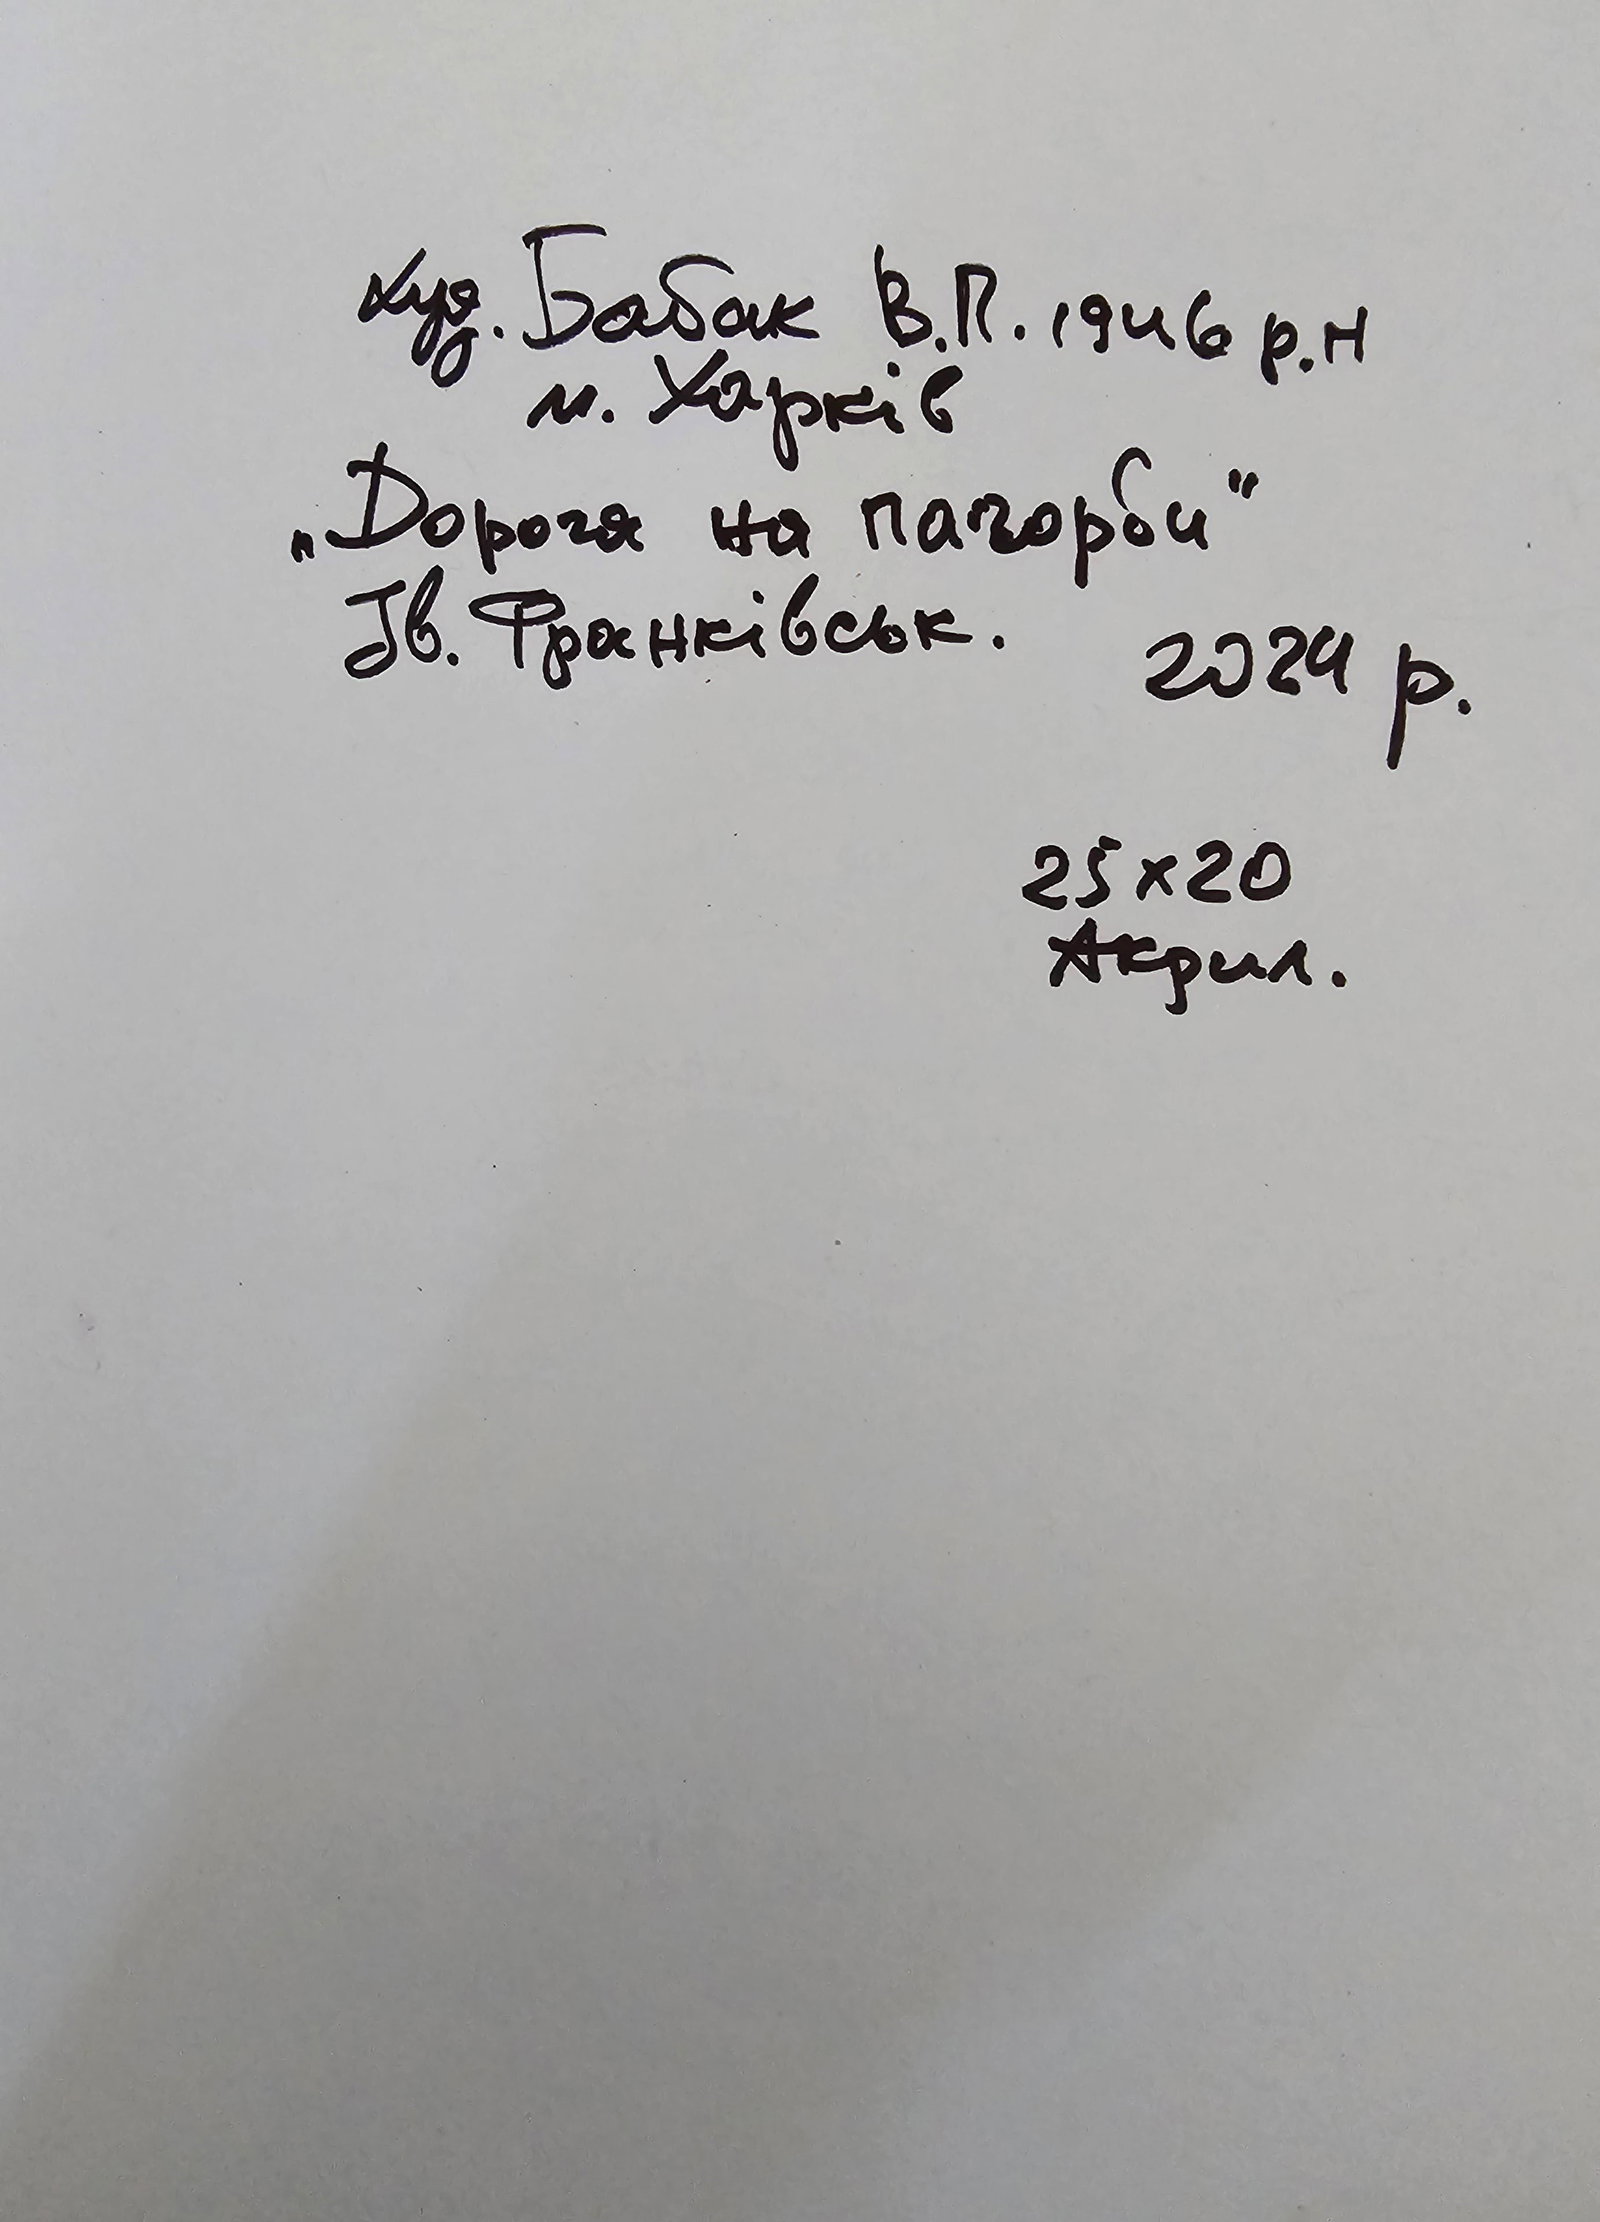 худ. Бабак В.П. 1946 р.н
м. Харків
„Дорога на пагорби"
Ів. Франківськ.
2024 р.
25x20
Акрил.